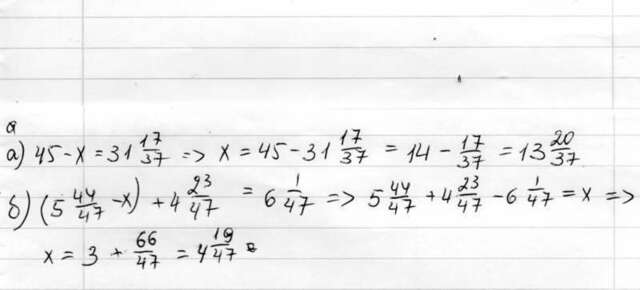 а) 45 - x = 31 17/37 => x = 45 - 31 17/37 = 14 - 17/37 = 13 20/37
б) (5 44/47 - x) + 4 23/47 = 6 1/47 => 5 44/47 + 4 23/47 - 6 1/47 = x =>
x = 3 + 66/47 = 4 19/47